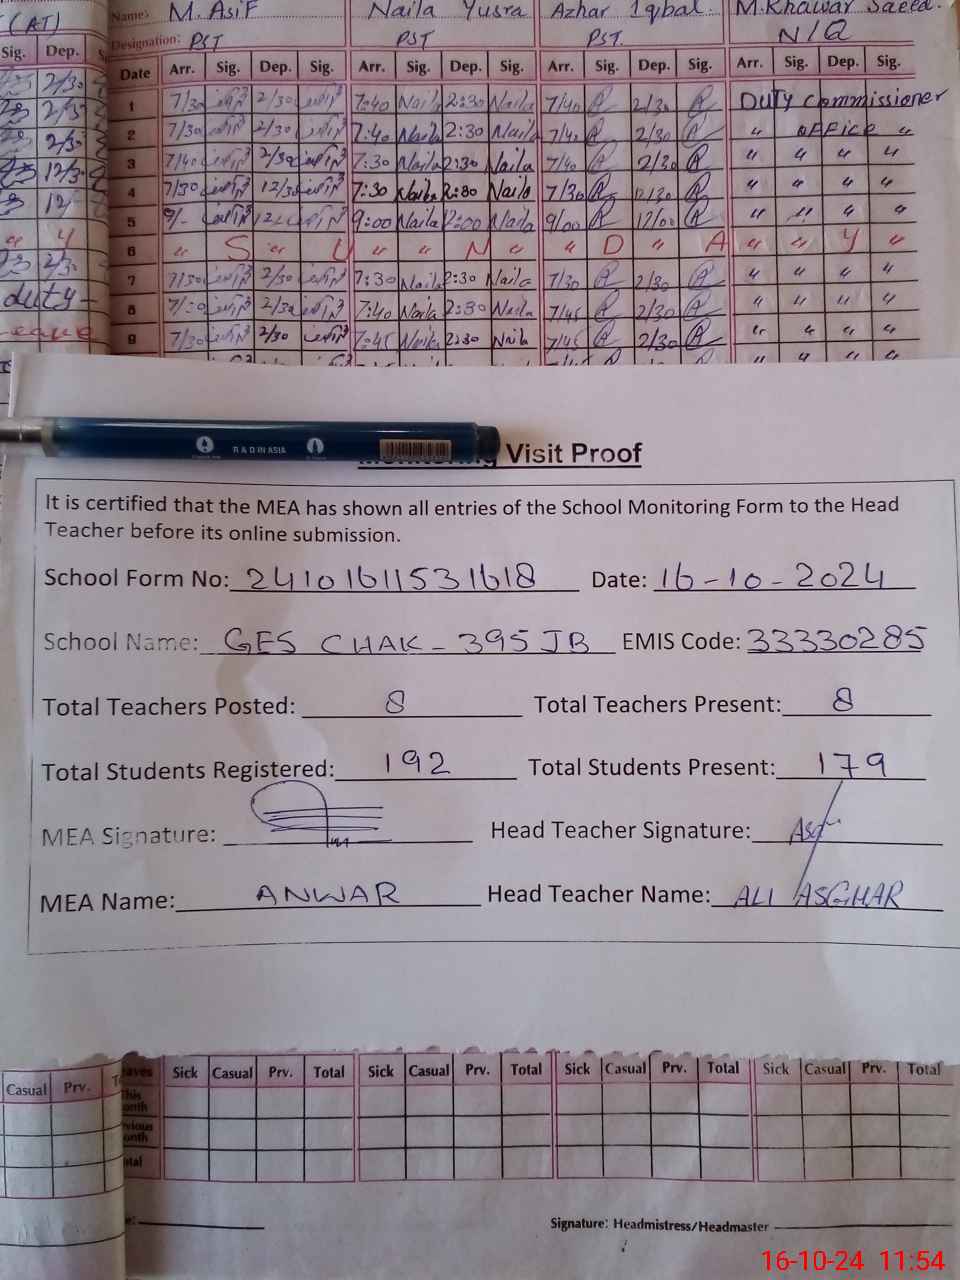 (AT)
Name: M. Asif Naila Yusra Azhar Iqbal. M. Khawar Saeed.
Designation: PST PST PST. N/Q
Sig. Dep.
Date Arr. Sig. Dep. Sig. Arr. Sig. Dep. Sig. Arr. Sig. Dep. Sig. Arr. Sig. Dep. Sig.
1 7/30 2/30 7:40 Naila 2:30 Naila 7/40 2/30 Duty Commissioner
2 7/30 2/30 7:40 Naila 2:30 Naila 7/40 2/30 " OFFICE "
3 7/40 2/30 7:30 Naila 2:30 Naila 7/40 2/30 " " " "
4 7/30 12/30 7:30 Naila 2:30 Naila 7/30 12/30 " " " "
5 9/- 9:00 Naila 12:00 Naila 9/00 12/00 " " " "
6 " S " U " N " " D " A " " Y "
7 7/30 2/30 7:30 Naila 2:30 Naila 7/30 2/30 " " " "
8 7/30 2/30 7:40 Naila 2:30 Naila 7/45 2/30 " " " "
9 7/30 2/30 7:45 Naila 2:30 Naila 7/45 2/30 " " " "
duty -
R & D IN ASIA
Visit Proof
It is certified that the MEA has shown all entries of the School Monitoring Form to the Head
Teacher before its online submission.
School Form No: 24101611531618 Date: 16-10-2024
School Name: GES CHAK - 395 JB EMIS Code: 33330285
Total Teachers Posted: 8 Total Teachers Present: 8
Total Students Registered: 192 Total Students Present: 179
MEA Signature: Head Teacher Signature:
MEA Name: ANWAR Head Teacher Name: ALI ASGHAR
Casual Prv. Sick Casual Prv. Total Sick Casual Prv. Total Sick Casual Prv. Total Sick Casual Prv. Total
Signature: Headmistress/Headmaster
16-10-24 11:54